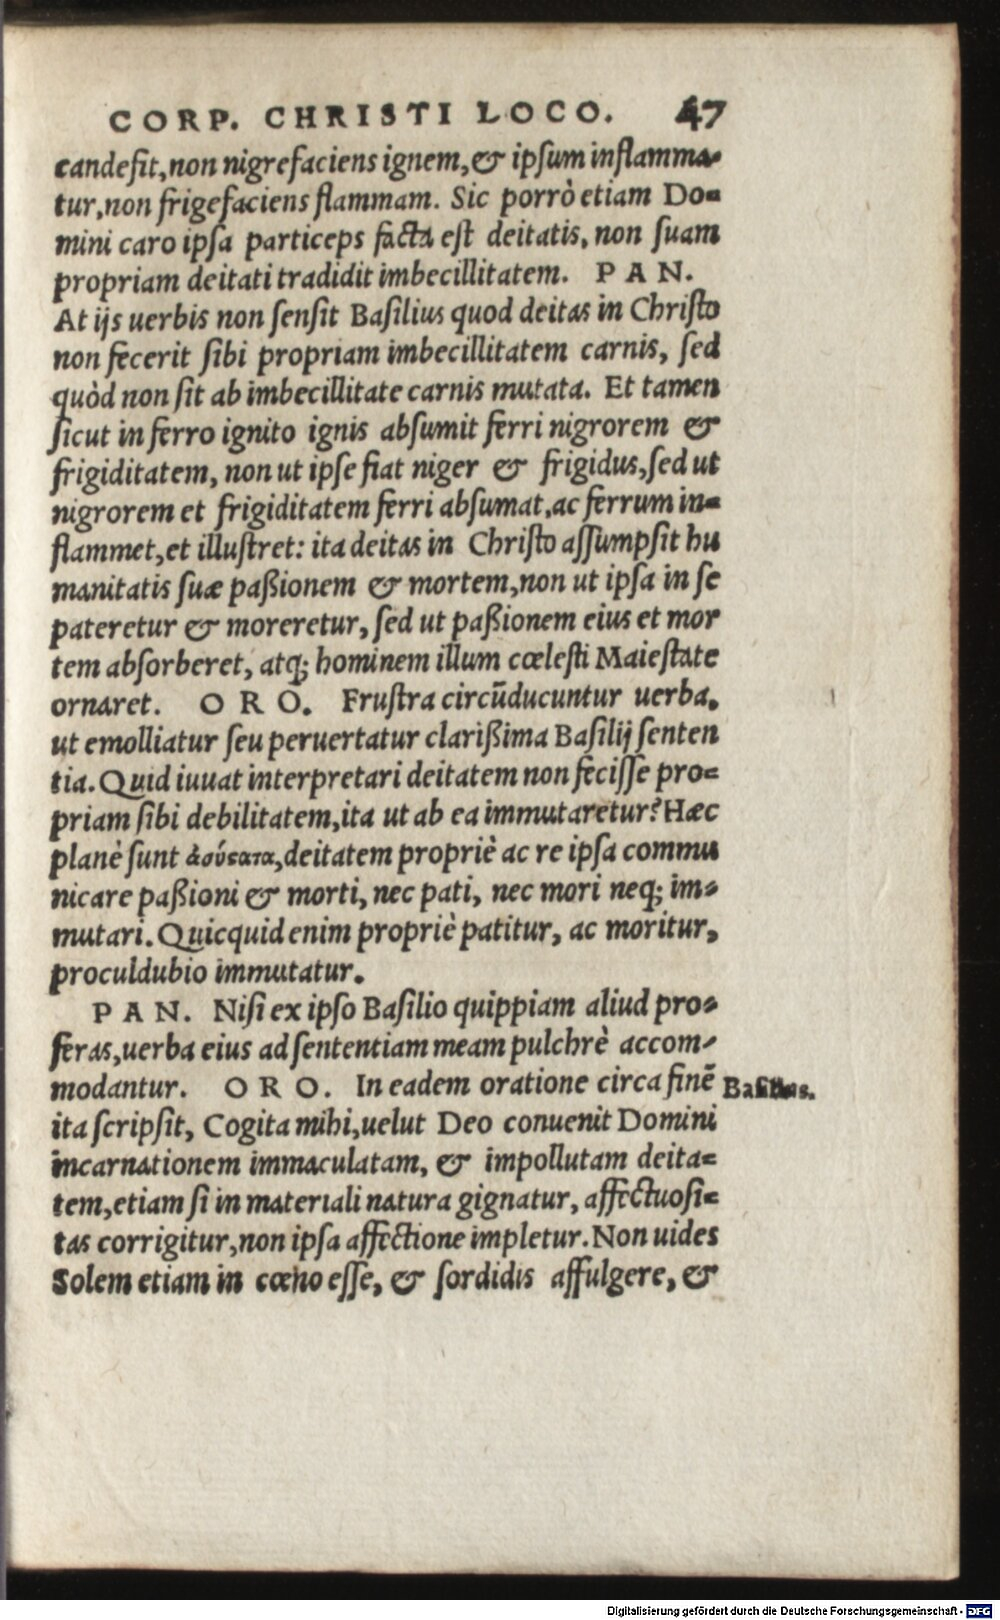 CORP. CHRISTI LOCO. 47
candefit, non nigrefaciens ignem, & ipsum inflamma-
tur, non frigefaciens flammam. Sic porrò etiam Do-
mini caro ipsa particeps facta est deitatis, non suam
propriam deitati tradidit imbecillitatem. PAN.
At ijs uerbis non sensit Basilius quod deitas in Christo
non fecerit sibi propriam imbecillitatem carnis, sed
quòd non sit ab imbecillitate carnis mutata. Et tamen
sicut in ferro ignito ignis absumit ferri nigrorem &
frigiditatem, non ut ipse fiat niger & frigidus, sed ut
nigrorem et frigiditatem ferri absumat, ac ferrum in-
flammet, et illustret: ita deitas in Christo assumpsit hu
manitatis suæ paßionem & mortem, non ut ipsa in se
pateretur & moreretur, sed ut paßionem eius et mor
tem absorberet, atq; hominem illum cœlesti Maiestate
ornaret. ORO. Frustra circũducuntur uerba,
ut emolliatur seu peruertatur clarißima Basilij senten
tia. Quid iuuat interpretari deitatem non fecisse pro-
priam sibi debilitatem, ita ut ab ea immutaretur? Hæc
planè sunt ἀσύςατα, deitatem propriè ac re ipsa commu
nicare paßioni & morti, nec pati, nec mori neq; im-
mutari. Quicquid enim propriè patitur, ac moritur,
proculdubio immutatur.
PAN. Nisi ex ipso Basilio quippiam aliud pro-
feras, uerba eius ad sententiam meam pulchrè accom-
modantur. ORO. In eadem oratione circa finẽ Basilius.
ita scripsit, Cogita mihi, uelut Deo conuenit Domini
incarnationem immaculatam, & impollutam deita-
tem, etiam si in materiali natura gignatur, affectuosi-
tas corrigitur, non ipsa affectione impletur. Non uides
Solem etiam in cœno esse, & sordidis affulgere, &
Digitalisierung gefördert durch die Deutsche Forschungsgemeinschaft - DFG